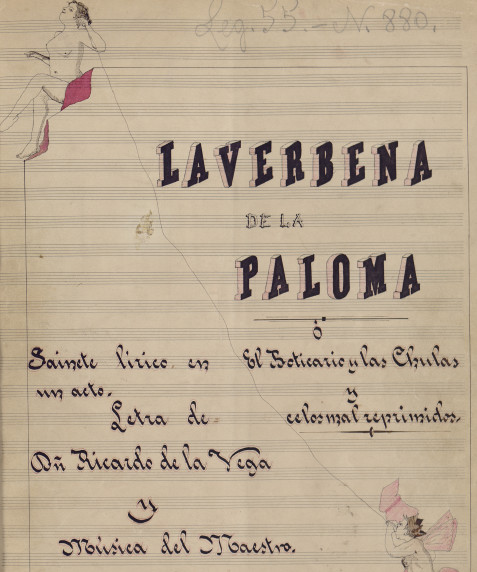 Leg. 55. - N. 880.
LA VERBENA
DE LA
PALOMA
ó
Sainete lirico en
un acto.
El Boticario y las Chulas
y
celos mal reprimidos.
Letra de
Dñ Ricardo de la Vega
y
Música del Maestro.